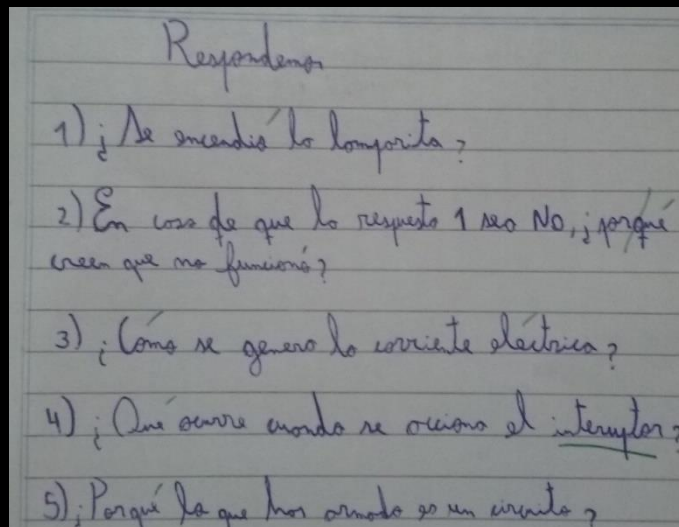 Respondemos
1) ¿Se encendió la lamparita?
2) En caso de que la respuesta 1 sea NO, ¿porqué
creen que no funcionó?
3) ¿Cómo se genera la corriente eléctrica?
4) ¿Qué ocurre cuando se acciona el interruptor?
5) ¿Porqué lo que has armado es un circuito?